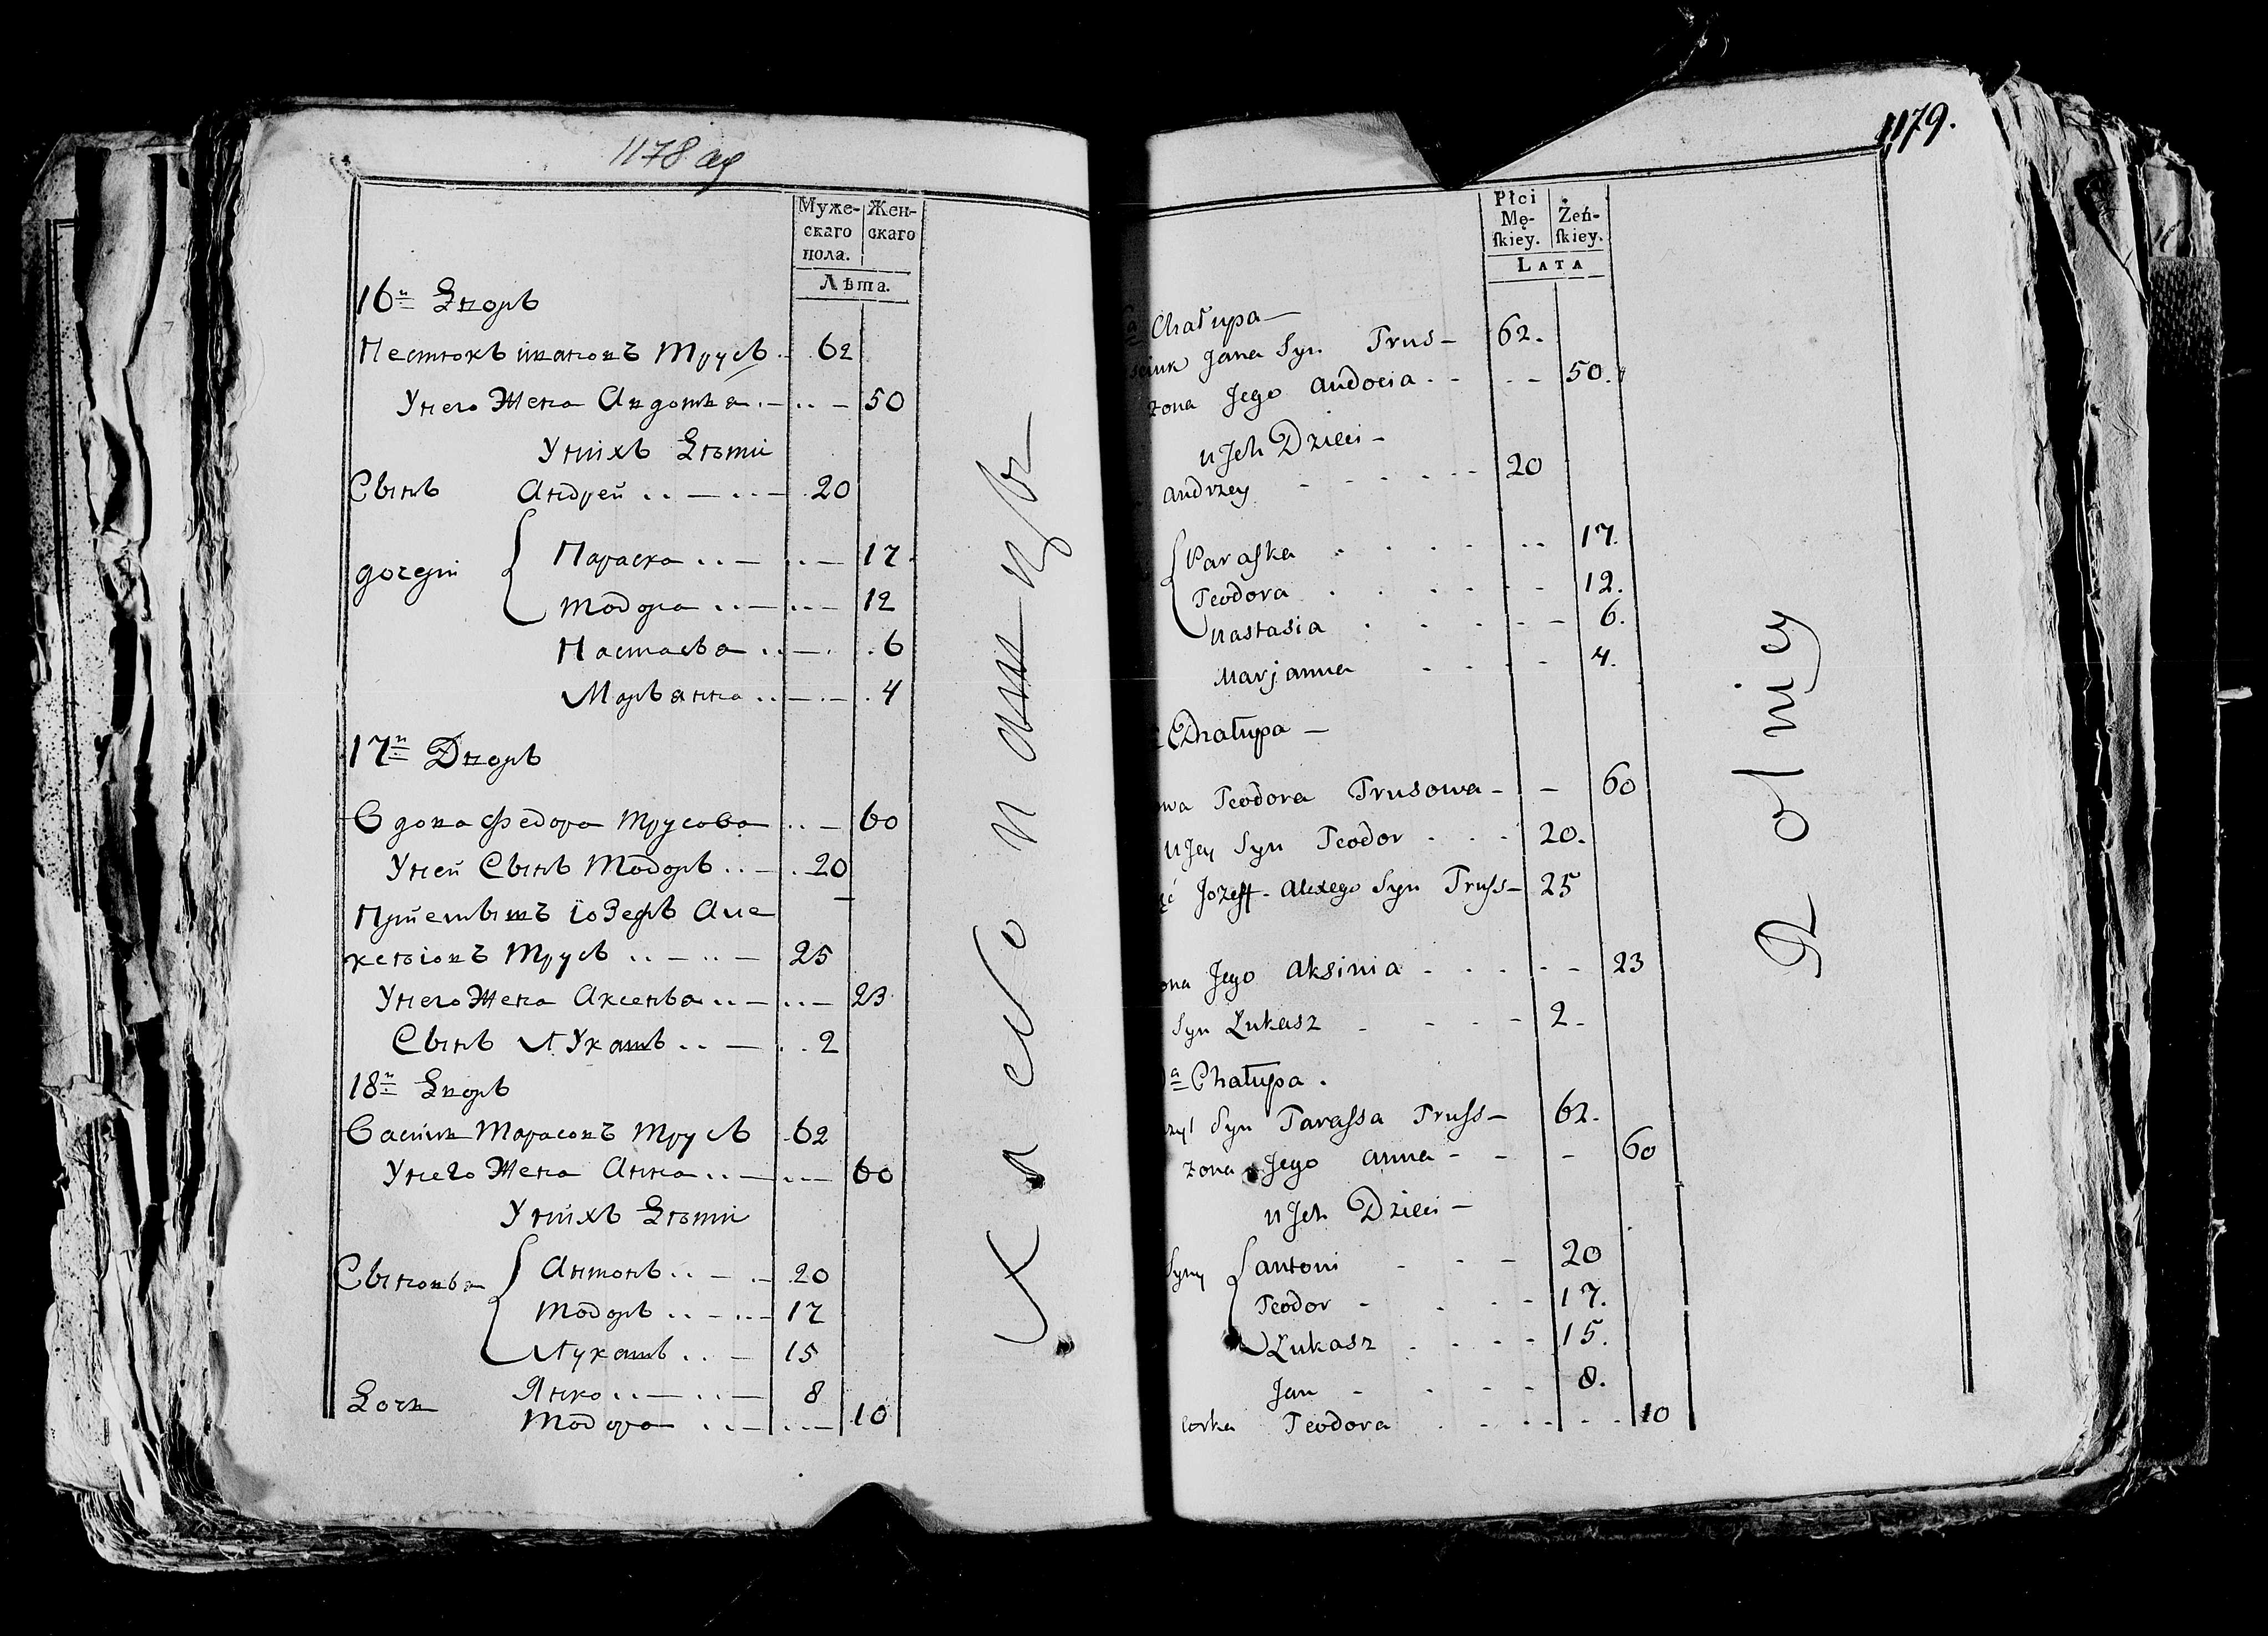 1178 об
Муже-
скаго
пола.
Жен-
скаго
Лѣта.
16й Дворъ
Нестюкъ ивановъ Трусъ 62
Унего Жена Авдотья 50
Унихъ Дѣти
Сынъ Андрей 20
дочери Параска 17
Тодора 12
Настасья 6
Марьянна 4
17й Дворъ
Вдова Федора Трусова 60
Уней Сынъ Тодоръ 20
Приемышъ іозефъ Але
ксѣіовъ Трусъ 25
Унего Жена Аксенья 23
Сынъ Лукашъ 2
18й Дворъ
Васили Тарасовъ Трусъ 62
Унего Жена Анна 60
Унихъ Дѣти
Сыновья Антонъ 20
Тодоръ 17
Лукашъ 15
Янко 8
Дочь Тодора 10
1179.
Płci
Mę-
ſkiey.
Żeń-
ſkiey.
LATA
Chałupa
Jana Syn Trus 62.
żona Jego Audocia 50.
u Jch Dzieci
Andrzey 20
Paraſka 17.
Teodora 12.
Nastasia 6.
Marjanna 4.
Chałupa
Teodora Trusowa 60
u Jey Syn Teodor 20.
Jozeff Alexego Syn Truſs 25
Jego Aksinia 23
Syn Łukasz 2
Chałupa.
Syn Taraſsa Truſs 62.
żona Jego Anna 60
u Jch Dzieci
Syny Antoni 20
Teodor 17.
Łukasz 15.
Jan 8.
corka Teodora 10
Rolniey